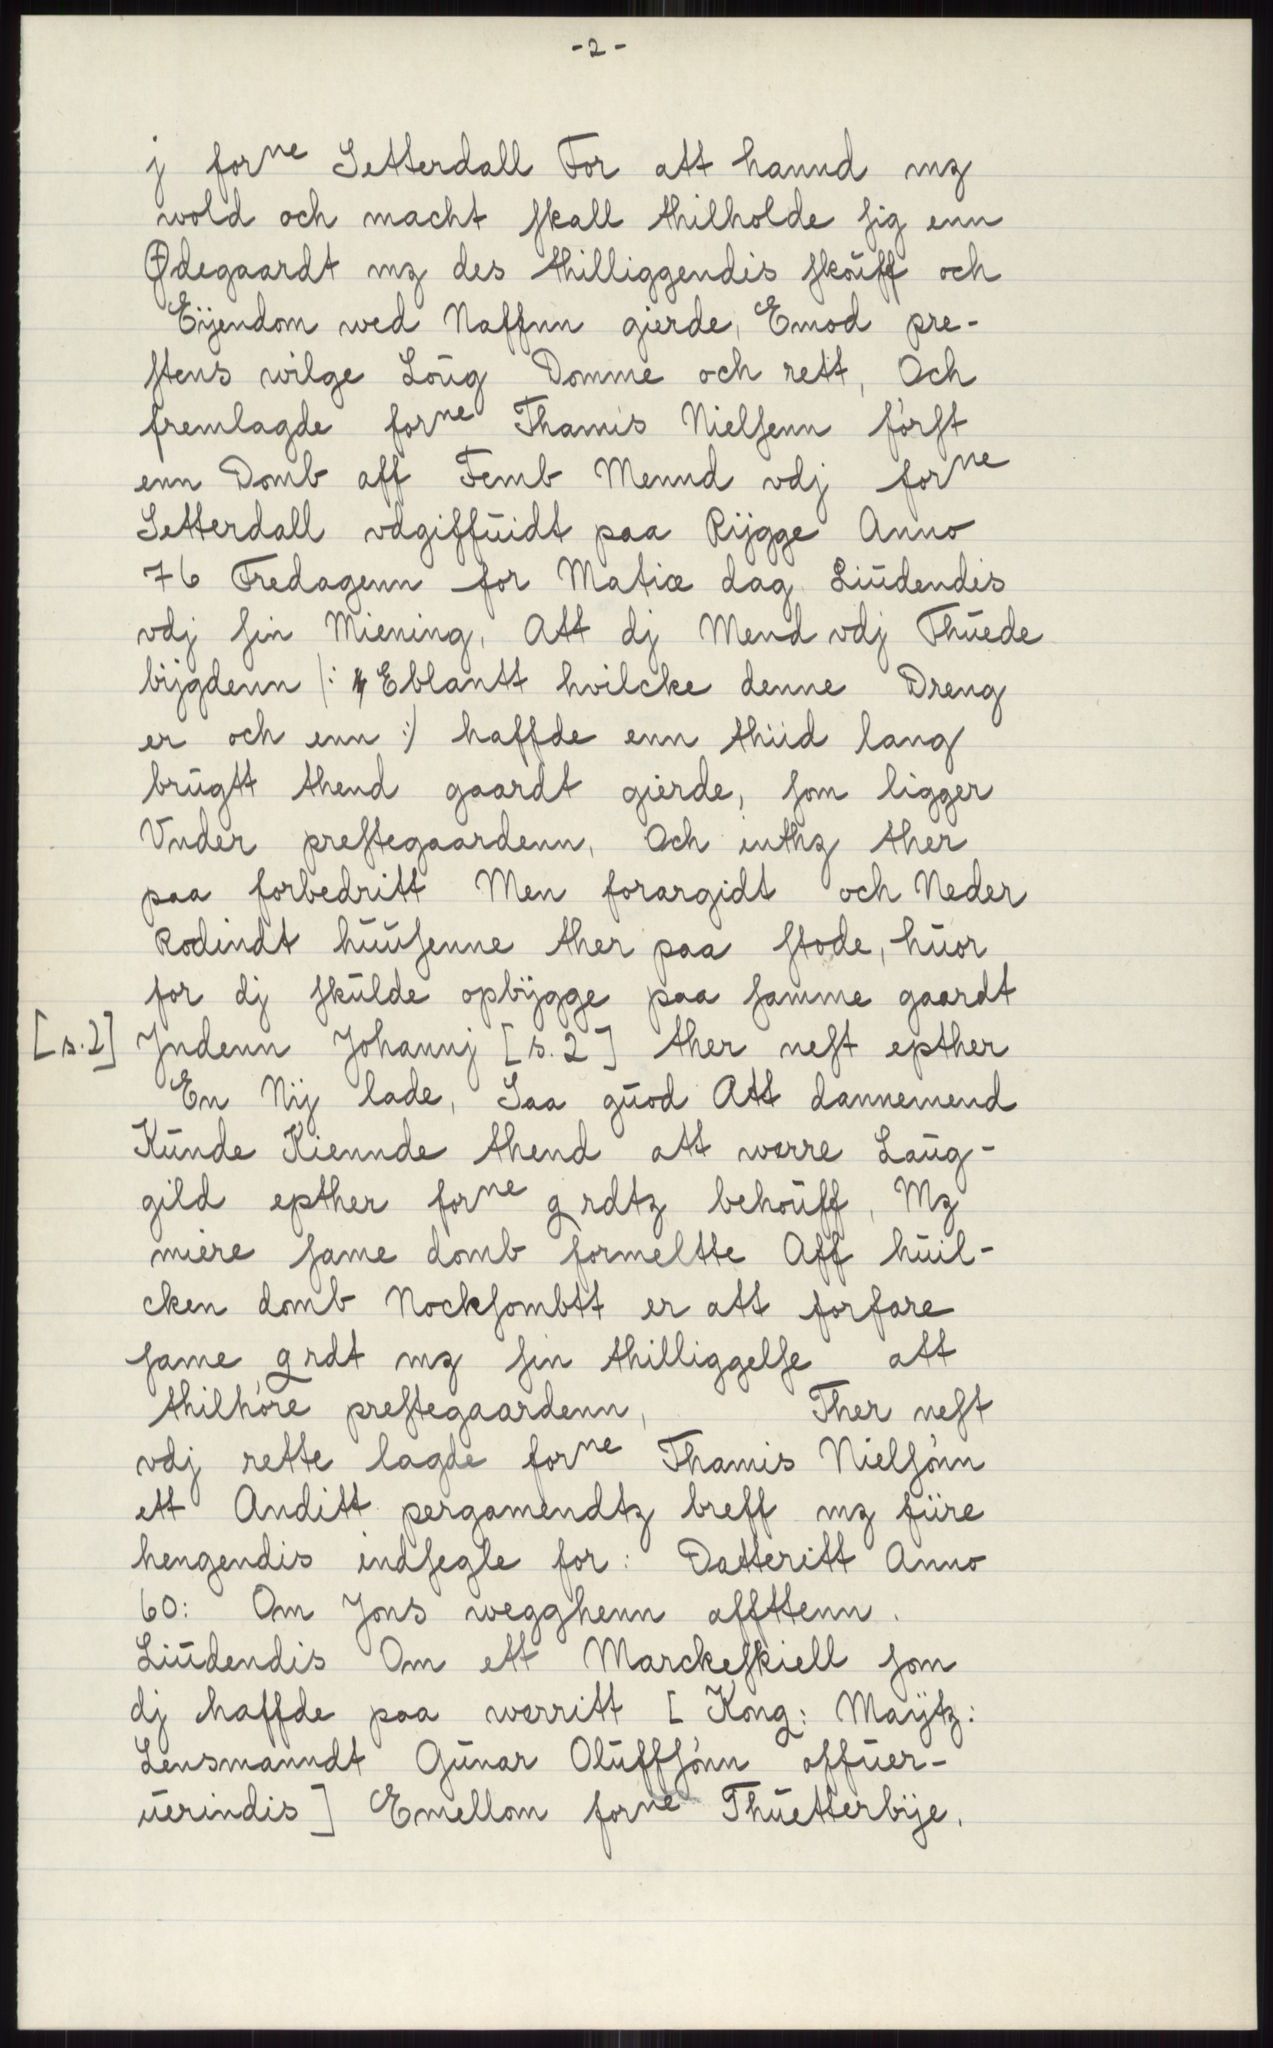 -2-
j forne Setterdall For att hannd mz
wold och macht skall thilholde sig enn
Ødegaardt mz des thilliggendis skouff och
Eijendom wed Naffnn gierde, Emod pre-
stens wilge Loug Domme och rett, Och
fremlagde forne Thamis Nielsenn först
enn Domb aff Femb Mennd vdj forne
Setterdall vdgiffuidt paa Rijgge Anno
76 Fredagenn for Matiæ dag Liudendis
vdj sin Miening, Att dj Mend vdj Thuede
bijgdenn /: Eblantt hvilcke denne Dreng
er och enn :/ haffde enn thiid lang
brugtt thend gaardt gierde, som ligger
Vnder prestegaardenn, Och inthz ther
paa forbedritt Men forargidt och Neder
Rodindt huusenne ther paa stode, huor
for dj skulde opbijgge paa samme gaardt
[s.2] Jndenn Johannj [s.2] ther nest epther
En Nij lade, Saa guod Att dannemend
Kunde Kiennde thend att werre Laug-
gild epther forne grdtz behouff, Mz
miere same domb formeltte Aff huil-
cken domb Nocksombtt er att forfare
same grdt mz sin thilliggelse att
thilhöre prestegaardenn, Ther nest
vdj rette lagde forne Thamis Nielsönn
ett Anditt pergamendtz breff mz fiire
hengendis indsegle for: Datteritt Anno
60: Om Jons wegghenn affttenn.
Liudendis Om ett Marckeskiell som
dj haffde paa werritt [ Kong: Maijtz:
Lensmanndt Gunar Oluffsönn offuer-
uerindis] Emellom forne Thuetterbije.